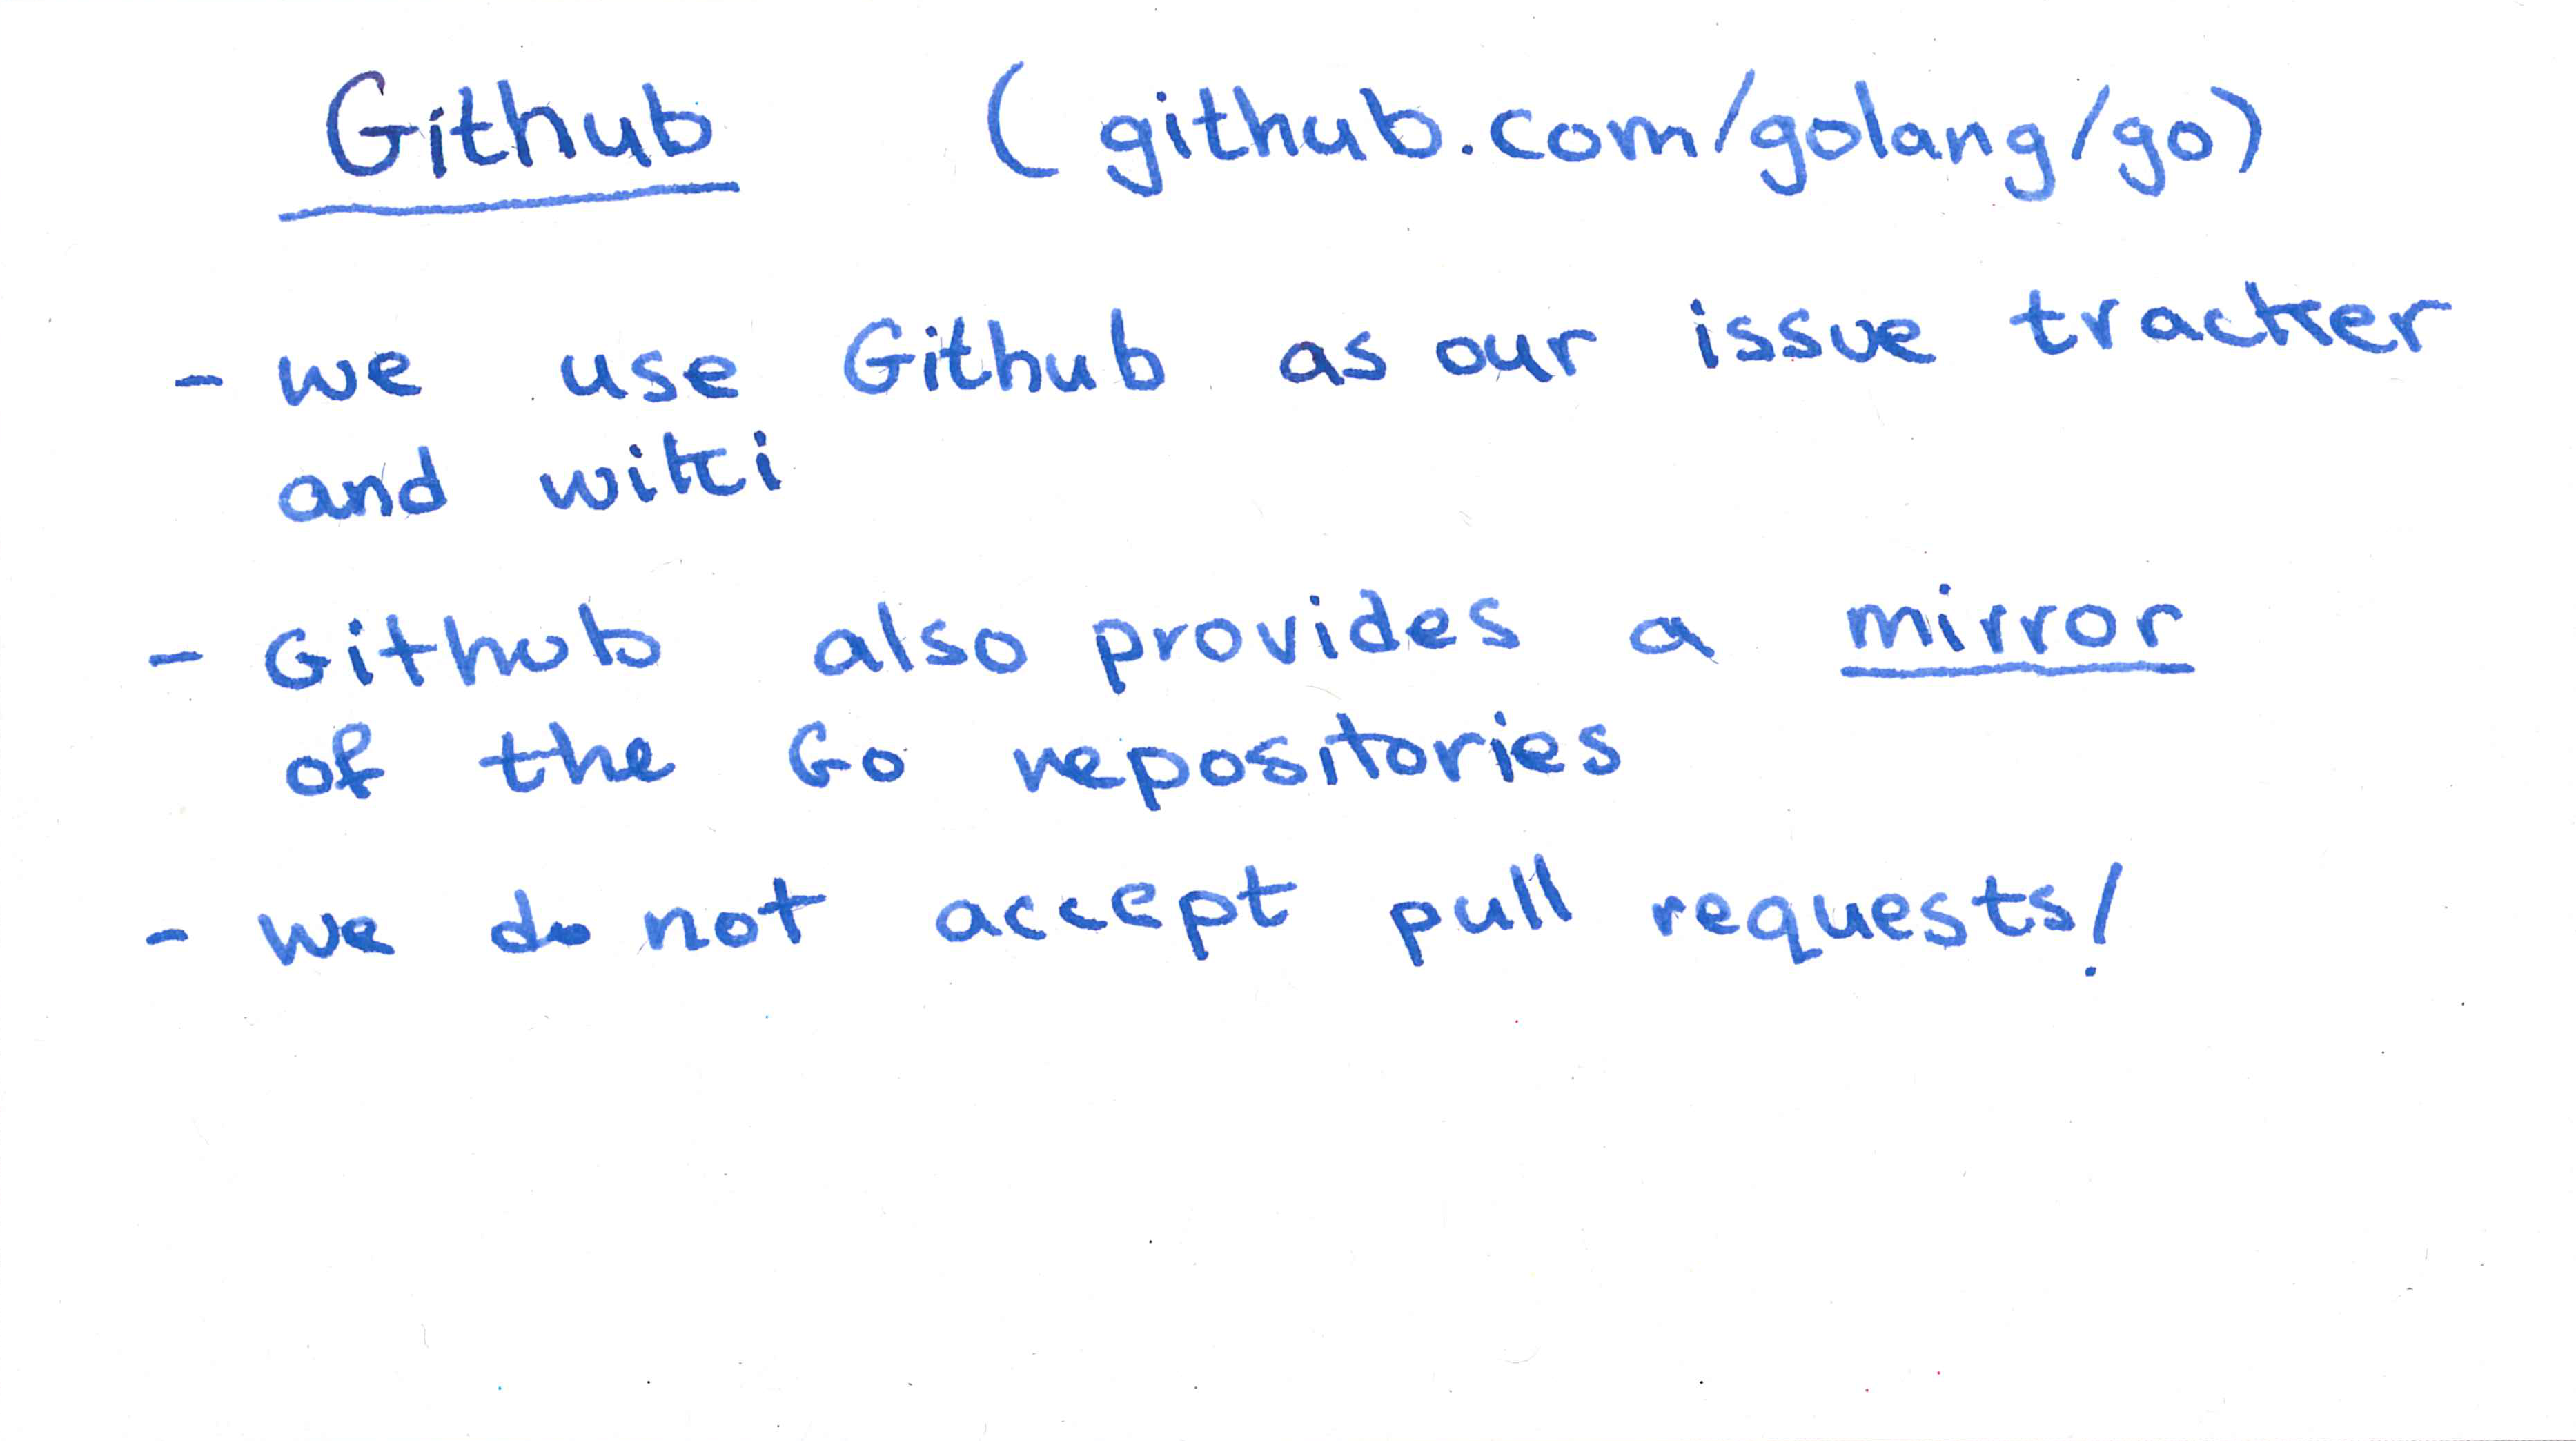 Github (github.com/golang/go)
- we use Github as our issue tracker
and wiki
- Github also provides a mirror
of the Go repositories
- we do not accept pull requests!